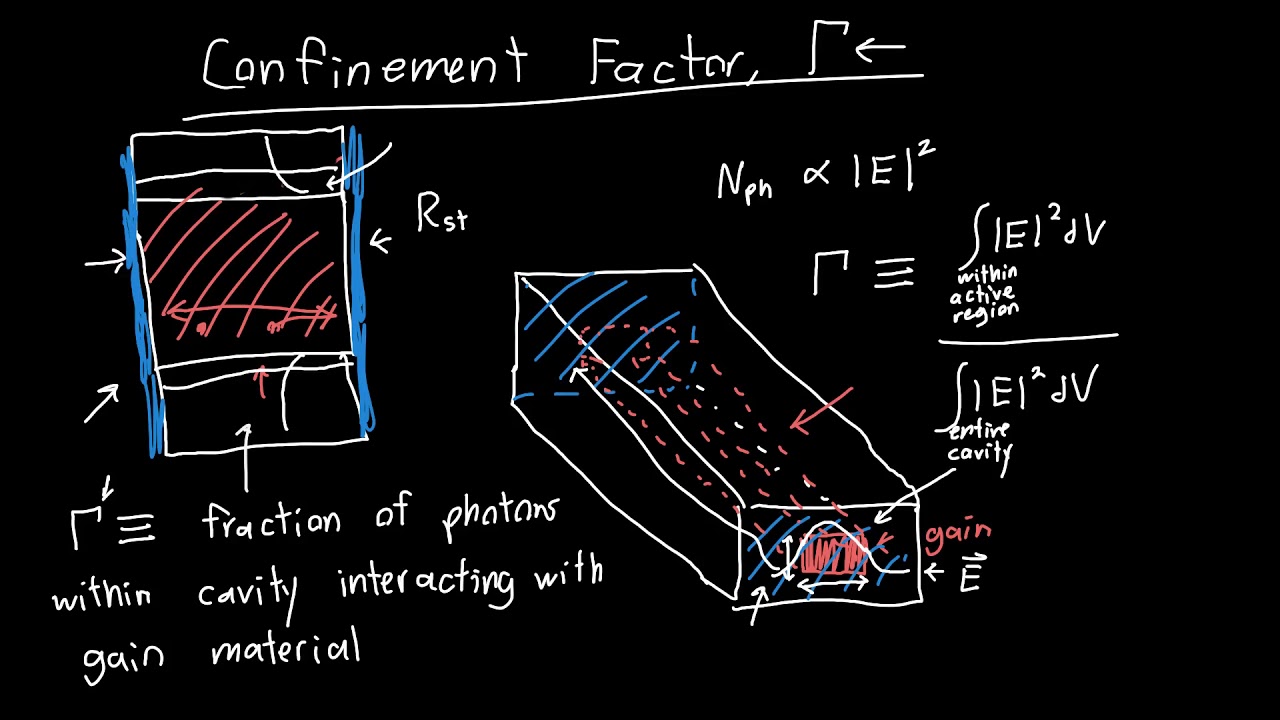 Confinement Factor, Γ ←
N_ph ∝ |E|²
R_st
Γ ≡ ∫|E|² dV
within
active
region
∫|E|² dV
entire
cavity
Γ ≡ fraction of photons
within cavity interacting with
gain material
gain
E⃗